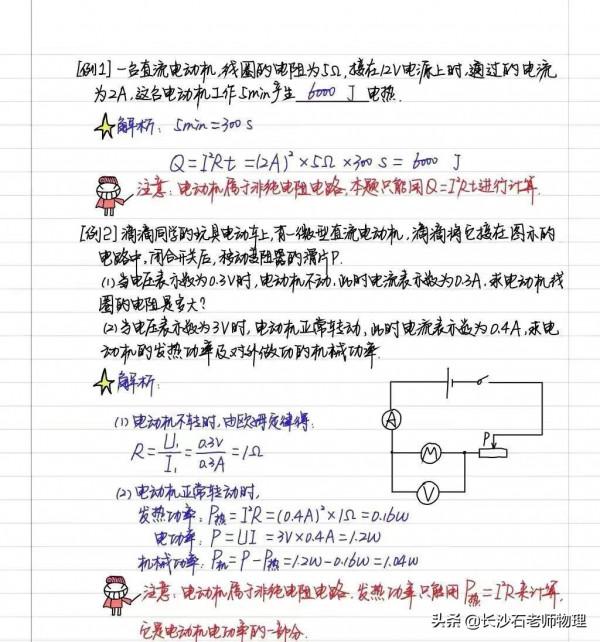 [例1]一台直流电动机,线圈的电阻为5Ω,接在12V电源上时,通过的电流
为2A,这台电动机工作5min产生 6000 J 电热.
解析: 5min=300s
Q=I²Rt=(2A)²×5Ω×300s=6000 J
注意:电动机属于非纯电阻电路,本题只能用Q=I²Rt进行计算.
[例2]滴滴同学的玩具电动车上,有一微型直流电动机,滴滴将它接在图示的
电路中,闭合开关后,移动变阻器的滑片P.
(1)当电压表示数为0.3V时,电动机不动,此时电流表示数为0.3A,求电动机线
圈的电阻是多大?
(2)当电压表示数为3V时,电动机正常转动,此时电流表示数为0.4A,求电
动机的发热功率及对外做功的机械功率.
解析:
(1)电动机不转时,由欧姆定律得:
R=U₁/I₁=0.3V/0.3A=1Ω
(2)电动机正常转动时,
发热功率:P热=I²R=(0.4A)²×1Ω=0.16W
电功率:P=UI=3V×0.4A=1.2W
机械功率:P机=P-P热=1.2W-0.16W=1.04W
A
M
V
P
注意:电动机属于非纯电阻电路,发热功率只能用P热=I²R来计算,
它是电动机电功率的一部分.
头条@长沙石老师物理